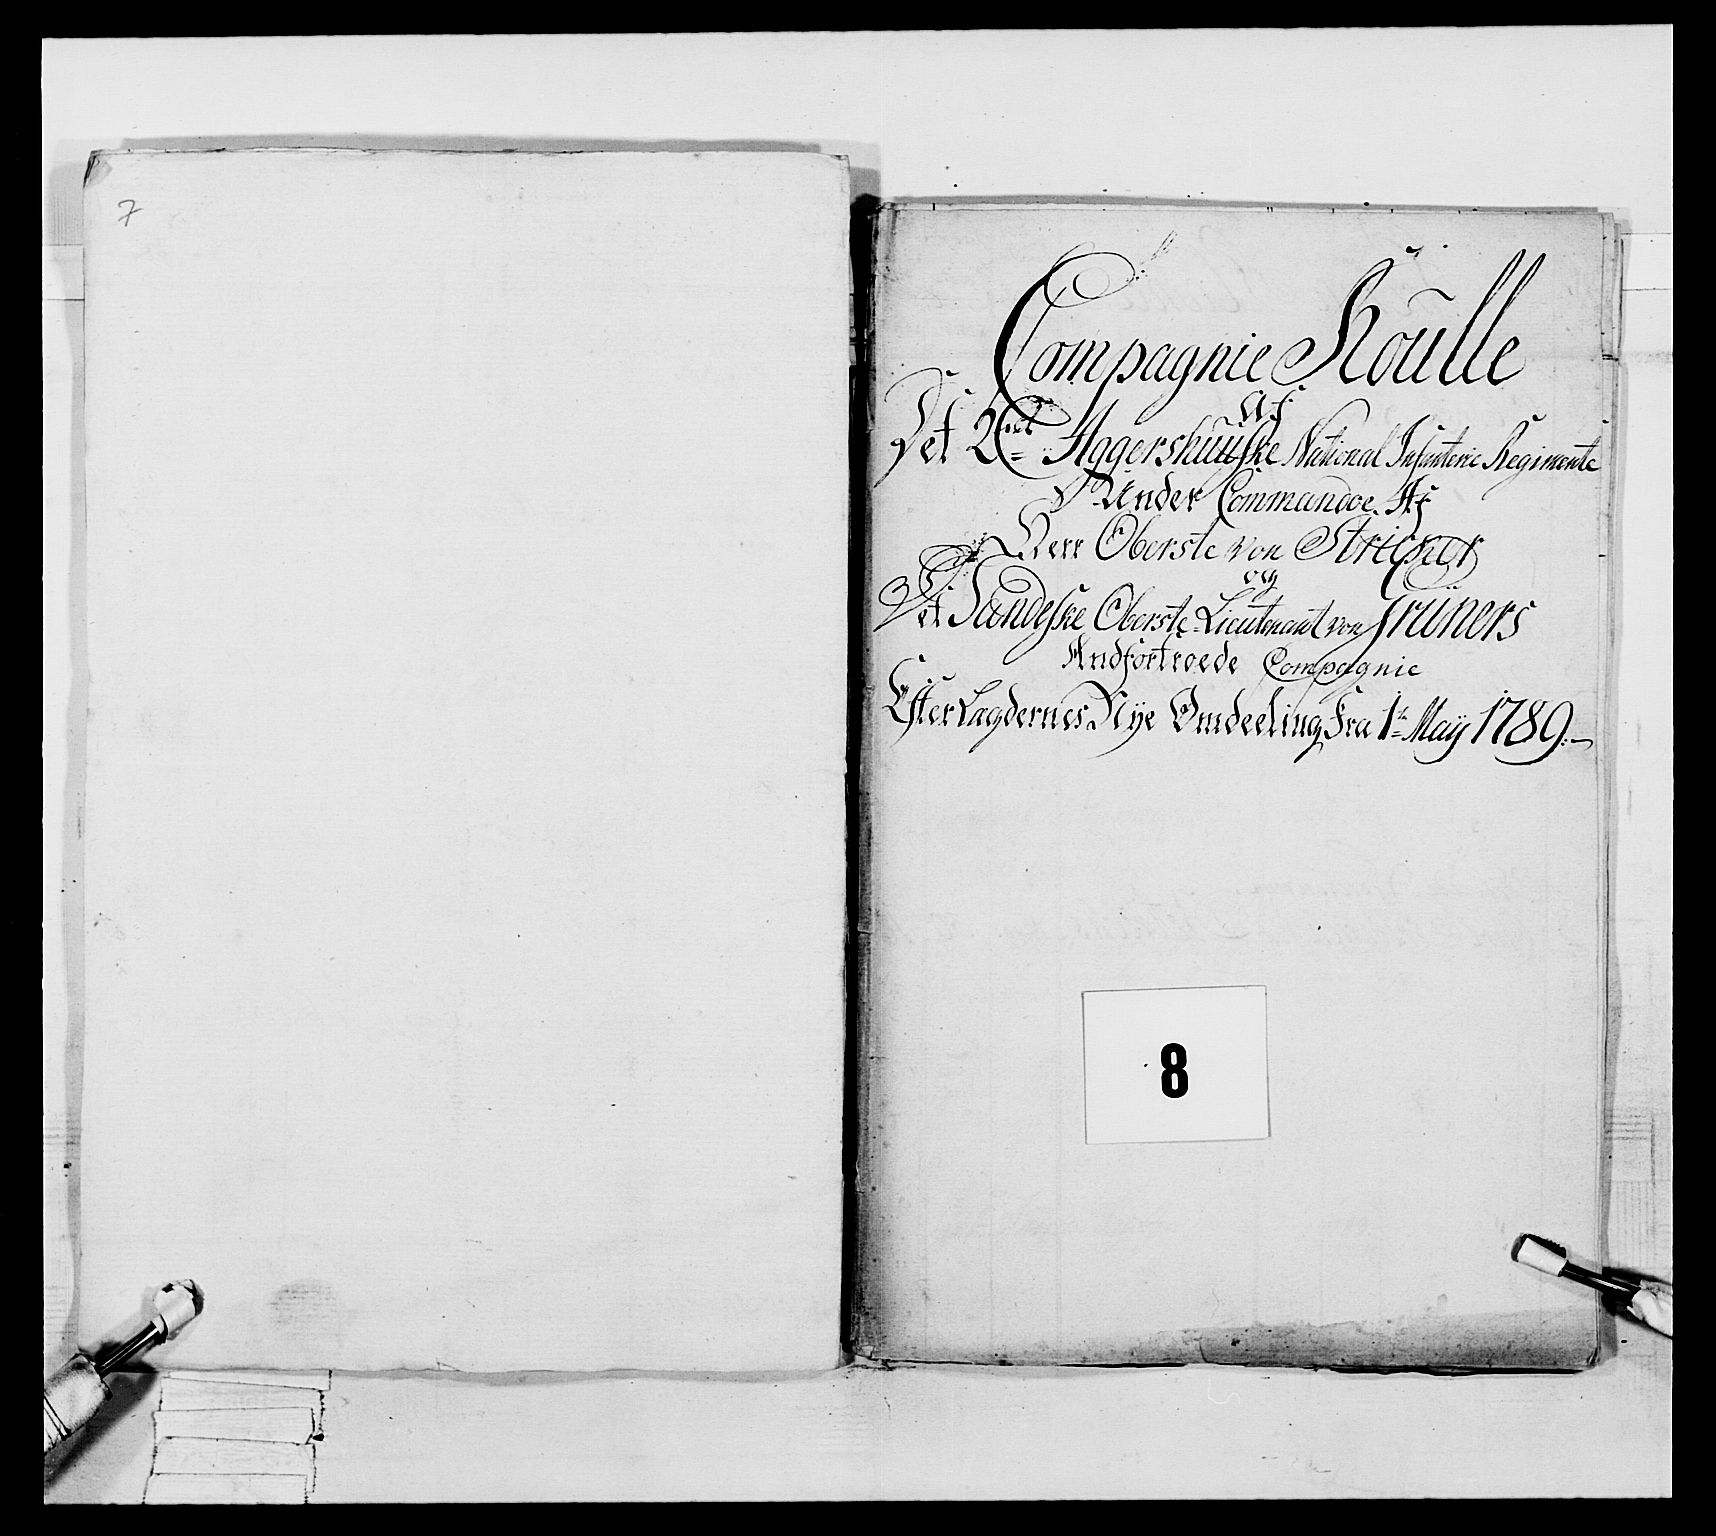 7
Compagnie Roulle
Af
Det 2det Aggershuusske National Infanterie Regimente
Under Commandoe Af
Herr Oberste von Stricker
og
Det Sandeske Oberste-Lieutenant von Grüners
Andfortroede Compagnie
Efter Lægdernes Nye Omdeeling Fra 1te Maÿ 1789.
8